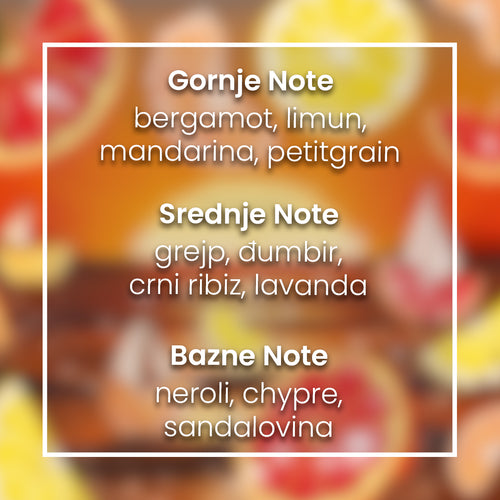 Gornje Note
bergamot, limun,
mandarina, petitgrain
Srednje Note
grejp, đumbir,
crni ribiz, lavanda
Bazne Note
neroli, chypre,
sandalovina